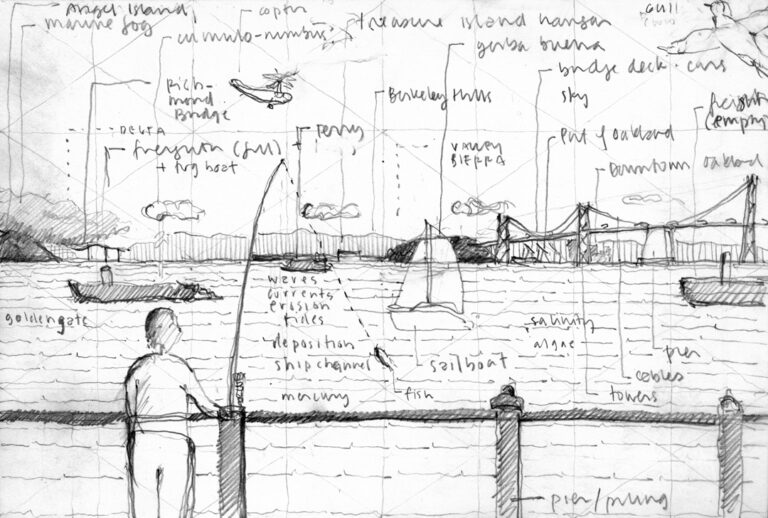 Angel Island
marine fog
cumulo-nimbus
copter
treasure island hangar
yerba buena
gull
bridge deck · cars
sky
Rich-
mond
Bridge
Berkeley Hills
freight
(empty)
DELTA
freighter (full)
+ tug boat
ferry
VALLEY
SIERRA
Port of Oakland
Downtown Oakland
goldengate
waves
currents
erosion
tides
deposition
ship channel
mercury
fish
sailboat
salinity
algae
pier
cables
towers
pier/piling